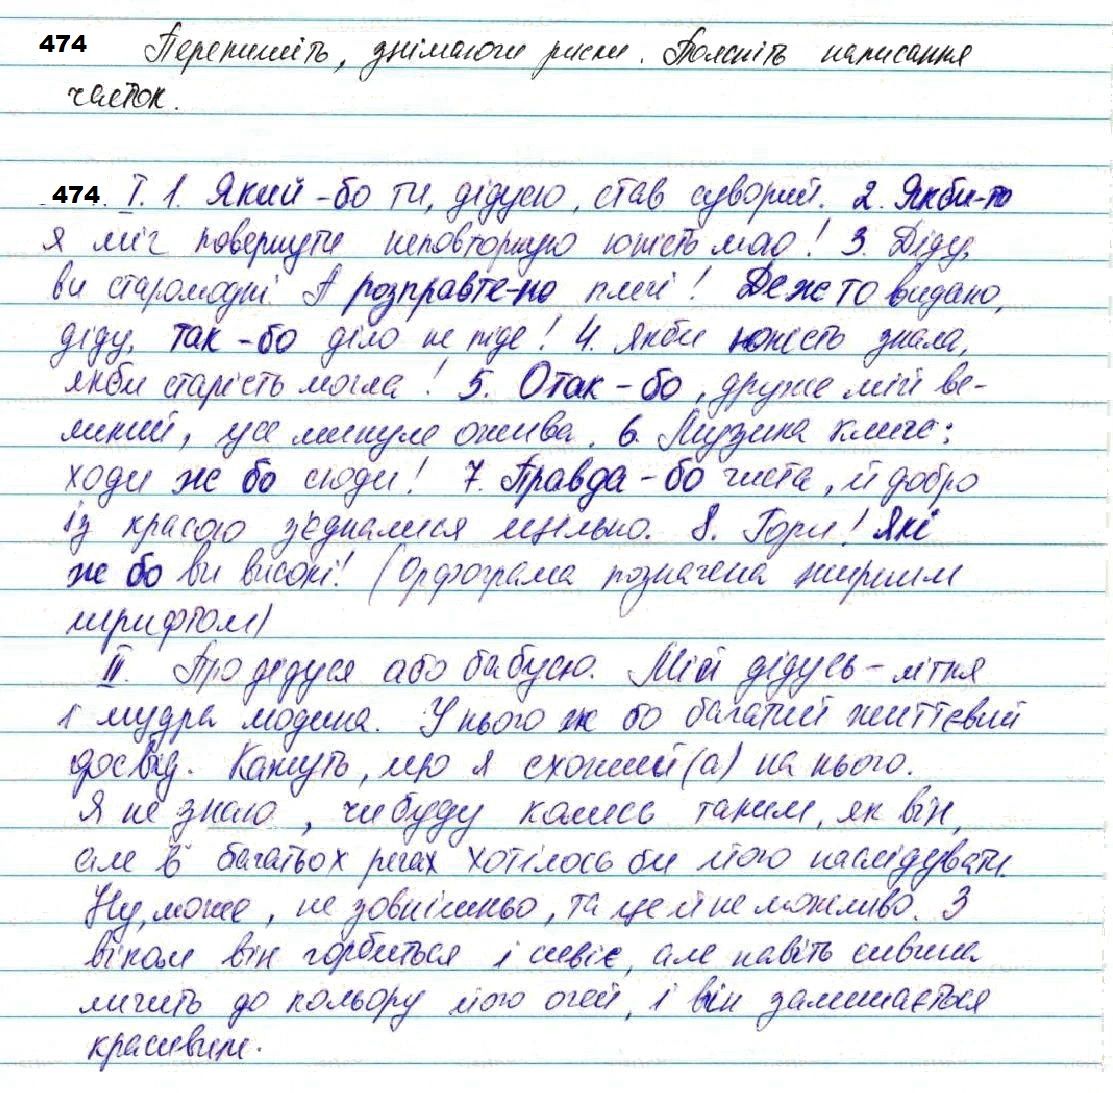 474 Перепишіть, знімаючи риски. Поясніть написання
часток.
474. І. 1. Який-бо ти, дідусю, став суворий. 2. Якби-то
я міг повернути неповторную юність мою! 3. Діду,
ви старомодні. А розправте-но плечі! Де ж то видано,
діду, так-бо діло не піде! 4. Якби юність знала,
якби старість могла! 5. Отак-бо, друже мій ве-
ликий, усе минуле ожива. 6. Музика кличе:
ходи ж бо сюди! 7. Правда-бо чиста, й добро
із красою з'єдналися щільно. 8. Гори! Які
ж бо ви високі! (Орфограма позначена жирним
шрифтом)
ІІ. Про дідуся або бабусю. Мій дідусь - літня
і мудра людина. У нього ж бо багатий життєвий
досвід. Кажуть, що я схожий(а) на нього.
Я не знаю, чи буду колись таким, як він,
але в багатьох речах хотілось би його наслідувати.
Ну, може, не зовнішньо, та це й не можливо. З
віком він горбиться і сивіє, але навіть сивина
личить до кольору його очей, і він залишається
красивим.